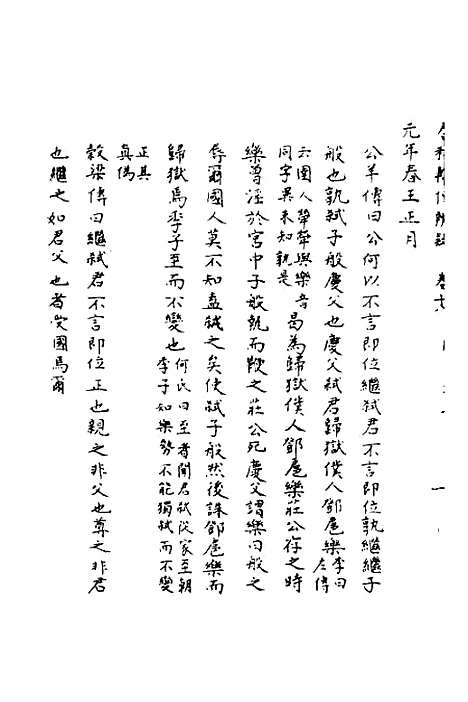 元年春王正月
公羊傳曰公何以不言即位繼弑君不言即位孰繼繼子
般也孰弑子般慶父也慶父弑君歸獄僕人鄧扈樂李曰
左傳
云圉人犖犖與樂音
同字異未知孰是曷為歸獄僕人鄧扈樂莊公存之時
樂曾淫於宮中子般執而鞭之莊公死慶父謂樂曰般之
辱爾國人莫不知盍弑之矣使弑子般然後誅鄧扈樂而
歸獄焉季子至而不變也何氏曰至者聞君弑從家至朝
季子知樂勢不能獨弑而不變
正其
真偽
穀梁傳曰繼弑君不言即位正也親之非父也尊之非君
也繼之如君父也者受國焉爾